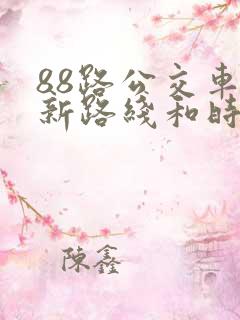 88路公交車
新路綫和時
陳鑫